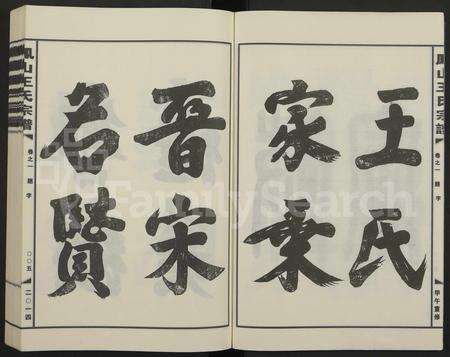 鳳山王氏宗譜
卷之一 題字
甲午重修
王氏
家乘
晋宋
名賢
鳳山王氏宗譜
卷之一 題字
〇〇五 二〇一四
FamilySearch